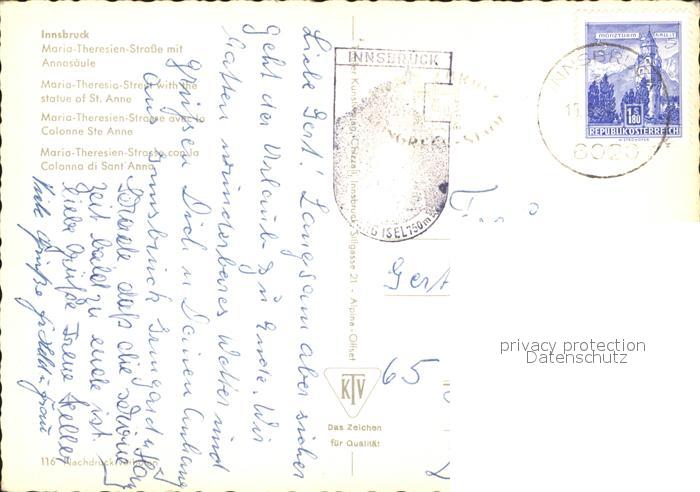 Innsbruck
Maria-Theresien-Straße mit
Annasäule
Maria-Theresia-Street with the
statue of St. Anne
Maria-Theresien-Strasse avec la
Colonne Ste Anne
Maria-Theresien-Strasse con la
Colonna di Sant'Anna
Liebe Gert! Langsam aber sicher
geht der Urlaub zu Ende. Wir
hatten wunderbares Wetter und
grüssen Dich u Deinen Anhang
aus Innsbruck Irmgard u
Schade daß die schöne
Zeit bald zu ende ist.
Liebe Grüße Irene Keller
Viele Grüße
116 Nachdruck verboten
Innsbruck, Sillgasse 21 - Alpina-Offset
KTV
Das Zeichen
für Qualität
INNSBRUCK
BERG ISEL 750 m
INNSBRUCK
6020
MÜNZTURM HALL i. T.
S 1.80
REPUBLIK ÖSTERREICH
Gert
65
privacy protection
Datenschutz